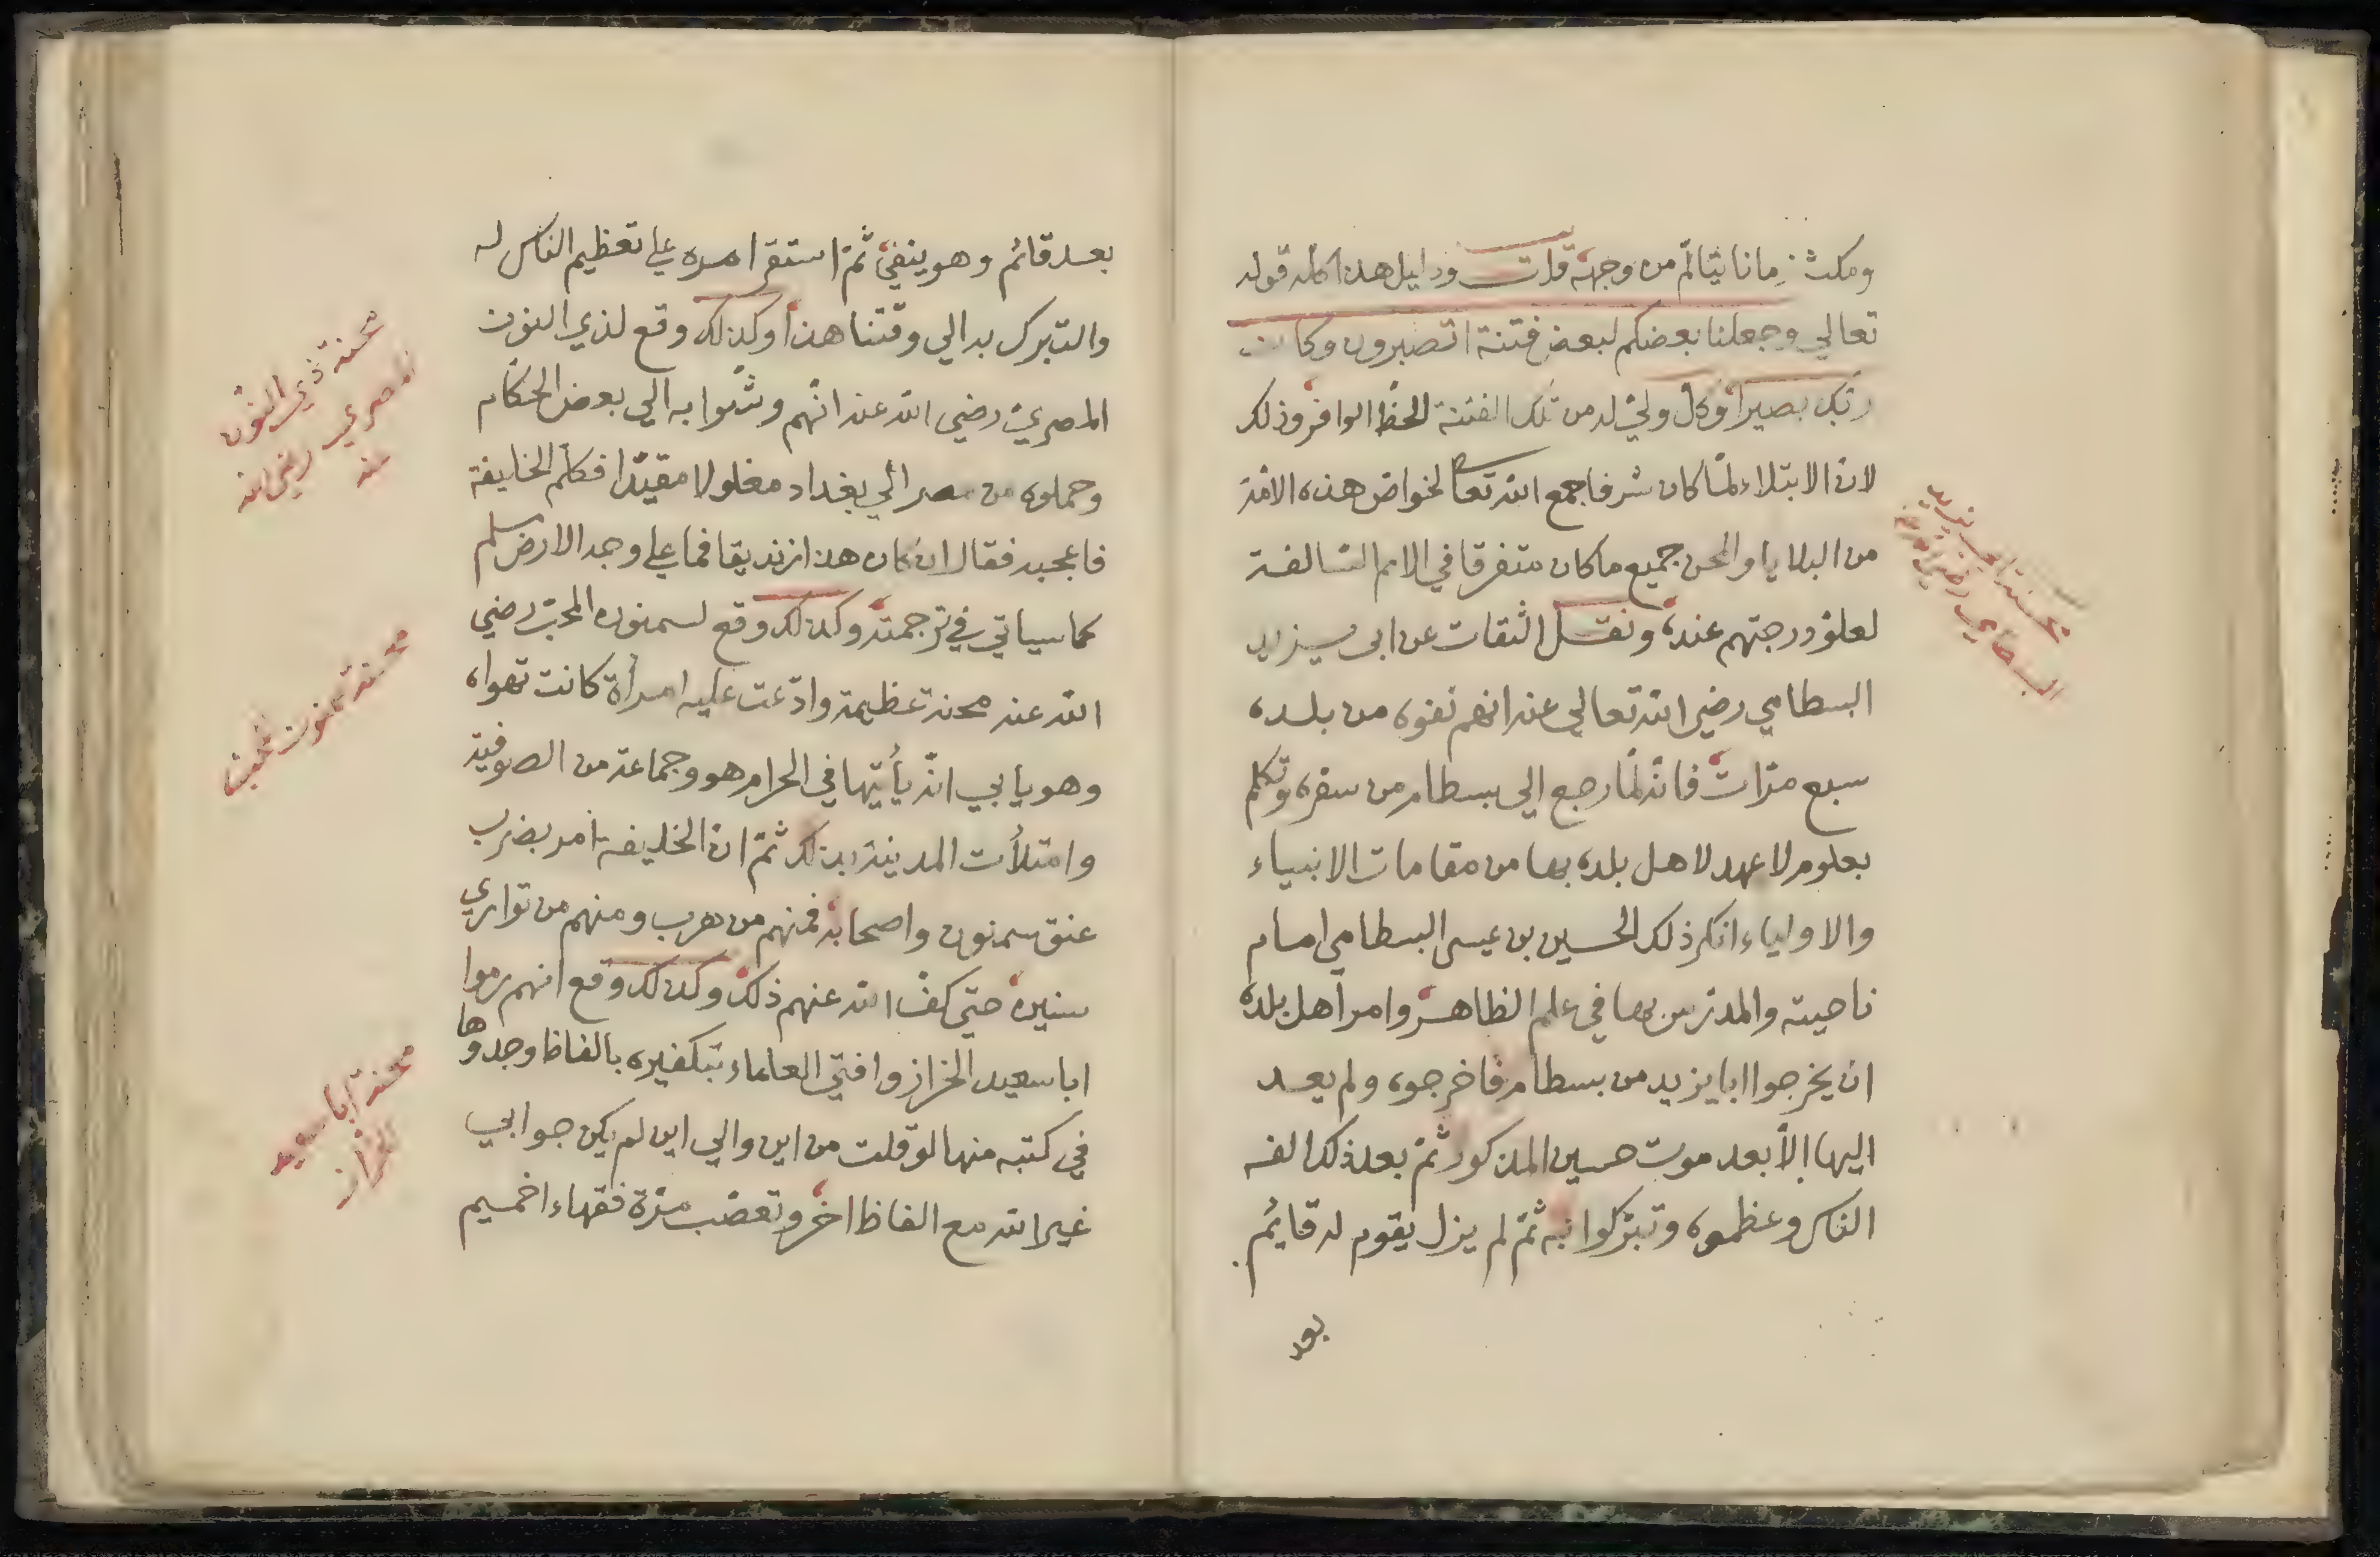 ومكث زمانا يتالّم من وجهه قلت ودليل هذا كله قوله
تعالي وجعلنا بعضكم لبعض فتنة اتصبرون وكان
ربّك بصيرا وكل وليّ له من تلك الفتنة الحظّ الوافر وذلك
لانّ الابتلاء لمّا كان شرفا جمع الله تعا لخواصّ هذه الامّة
من البلايا والمحن جميع ما كان متفرقا في الامم السّالفة
لعلوّ درجتهم عنده ونقل الثقات عن ابي يزيد
البسطامي رضي الله تعالي عنه انهم نفوه من بلده
سبع مرّات فانّه لمّا رجع الي بسطام من سفره وتكلم
بعلوم لا عهد لاهل بلده بها من مقامات الانبياء
والاولياء انكر ذلك الحسين بن عيسى البسطامي امام
ناحيته والمدرّس بها في علم الظاهر وامر اهل بلده
ان يخرجوا ابا يزيد من بسطام فاخرجوه ولم يعد
اليها إلّا بعد موت حسين المذكور ثمّ بعد ذلك الفه
الناس وعظموه وتبرّكوا به ثمّ لم يزل يقوم له قائم
بعد
محنة ابي يزيد
البسطامي رضي الله عنه
بعد قائم وهو ينفي ثمّ استقر امره علي تعظيم الناس له
والتبرك به الي وقتنا هذا وكذلك وقع لذي النون
المصريّ رضي الله عنه انّهم وشوا به الي بعض الحكّام
وحملوه من مصر الي بغداد مغلولا مقيّدا فكلم الخليفة
فاعجبه فقال ان كان هذا زنديقا فما علي وجه الارض مسلم
كما سياتي في ترجمته وكذلك وقع لسمنون المحبّ رضي
الله عنه محنة عظيمة وادّعت عليه امرأة كانت تهواه
وهو يابي انّه يأتيها في الحرام هو وجماعة من الصوفية
وامتلأت المدينة بذلك ثمّ انّ الخليفة امر بضرب
عنق سمنون واصحابه فمنهم من هرب ومنهم من تواري
سنين حتي كفّ الله عنهم ذلك وكذلك وقع انهم رموا
ابا سعيد الخراز وافتي العلماء بتكفيره بالفاظ وجدوها
في كتبه منها لو قلت من اين والي اين لم يكن جوابي
غير الله مع الفاظ اخر وتعصّب مرّة فقهاء اخميم
محنة ذي النون
المصري رضي الله
عنه
محنة سمنون المحبّ
محنة ابا سعيد
الخراز